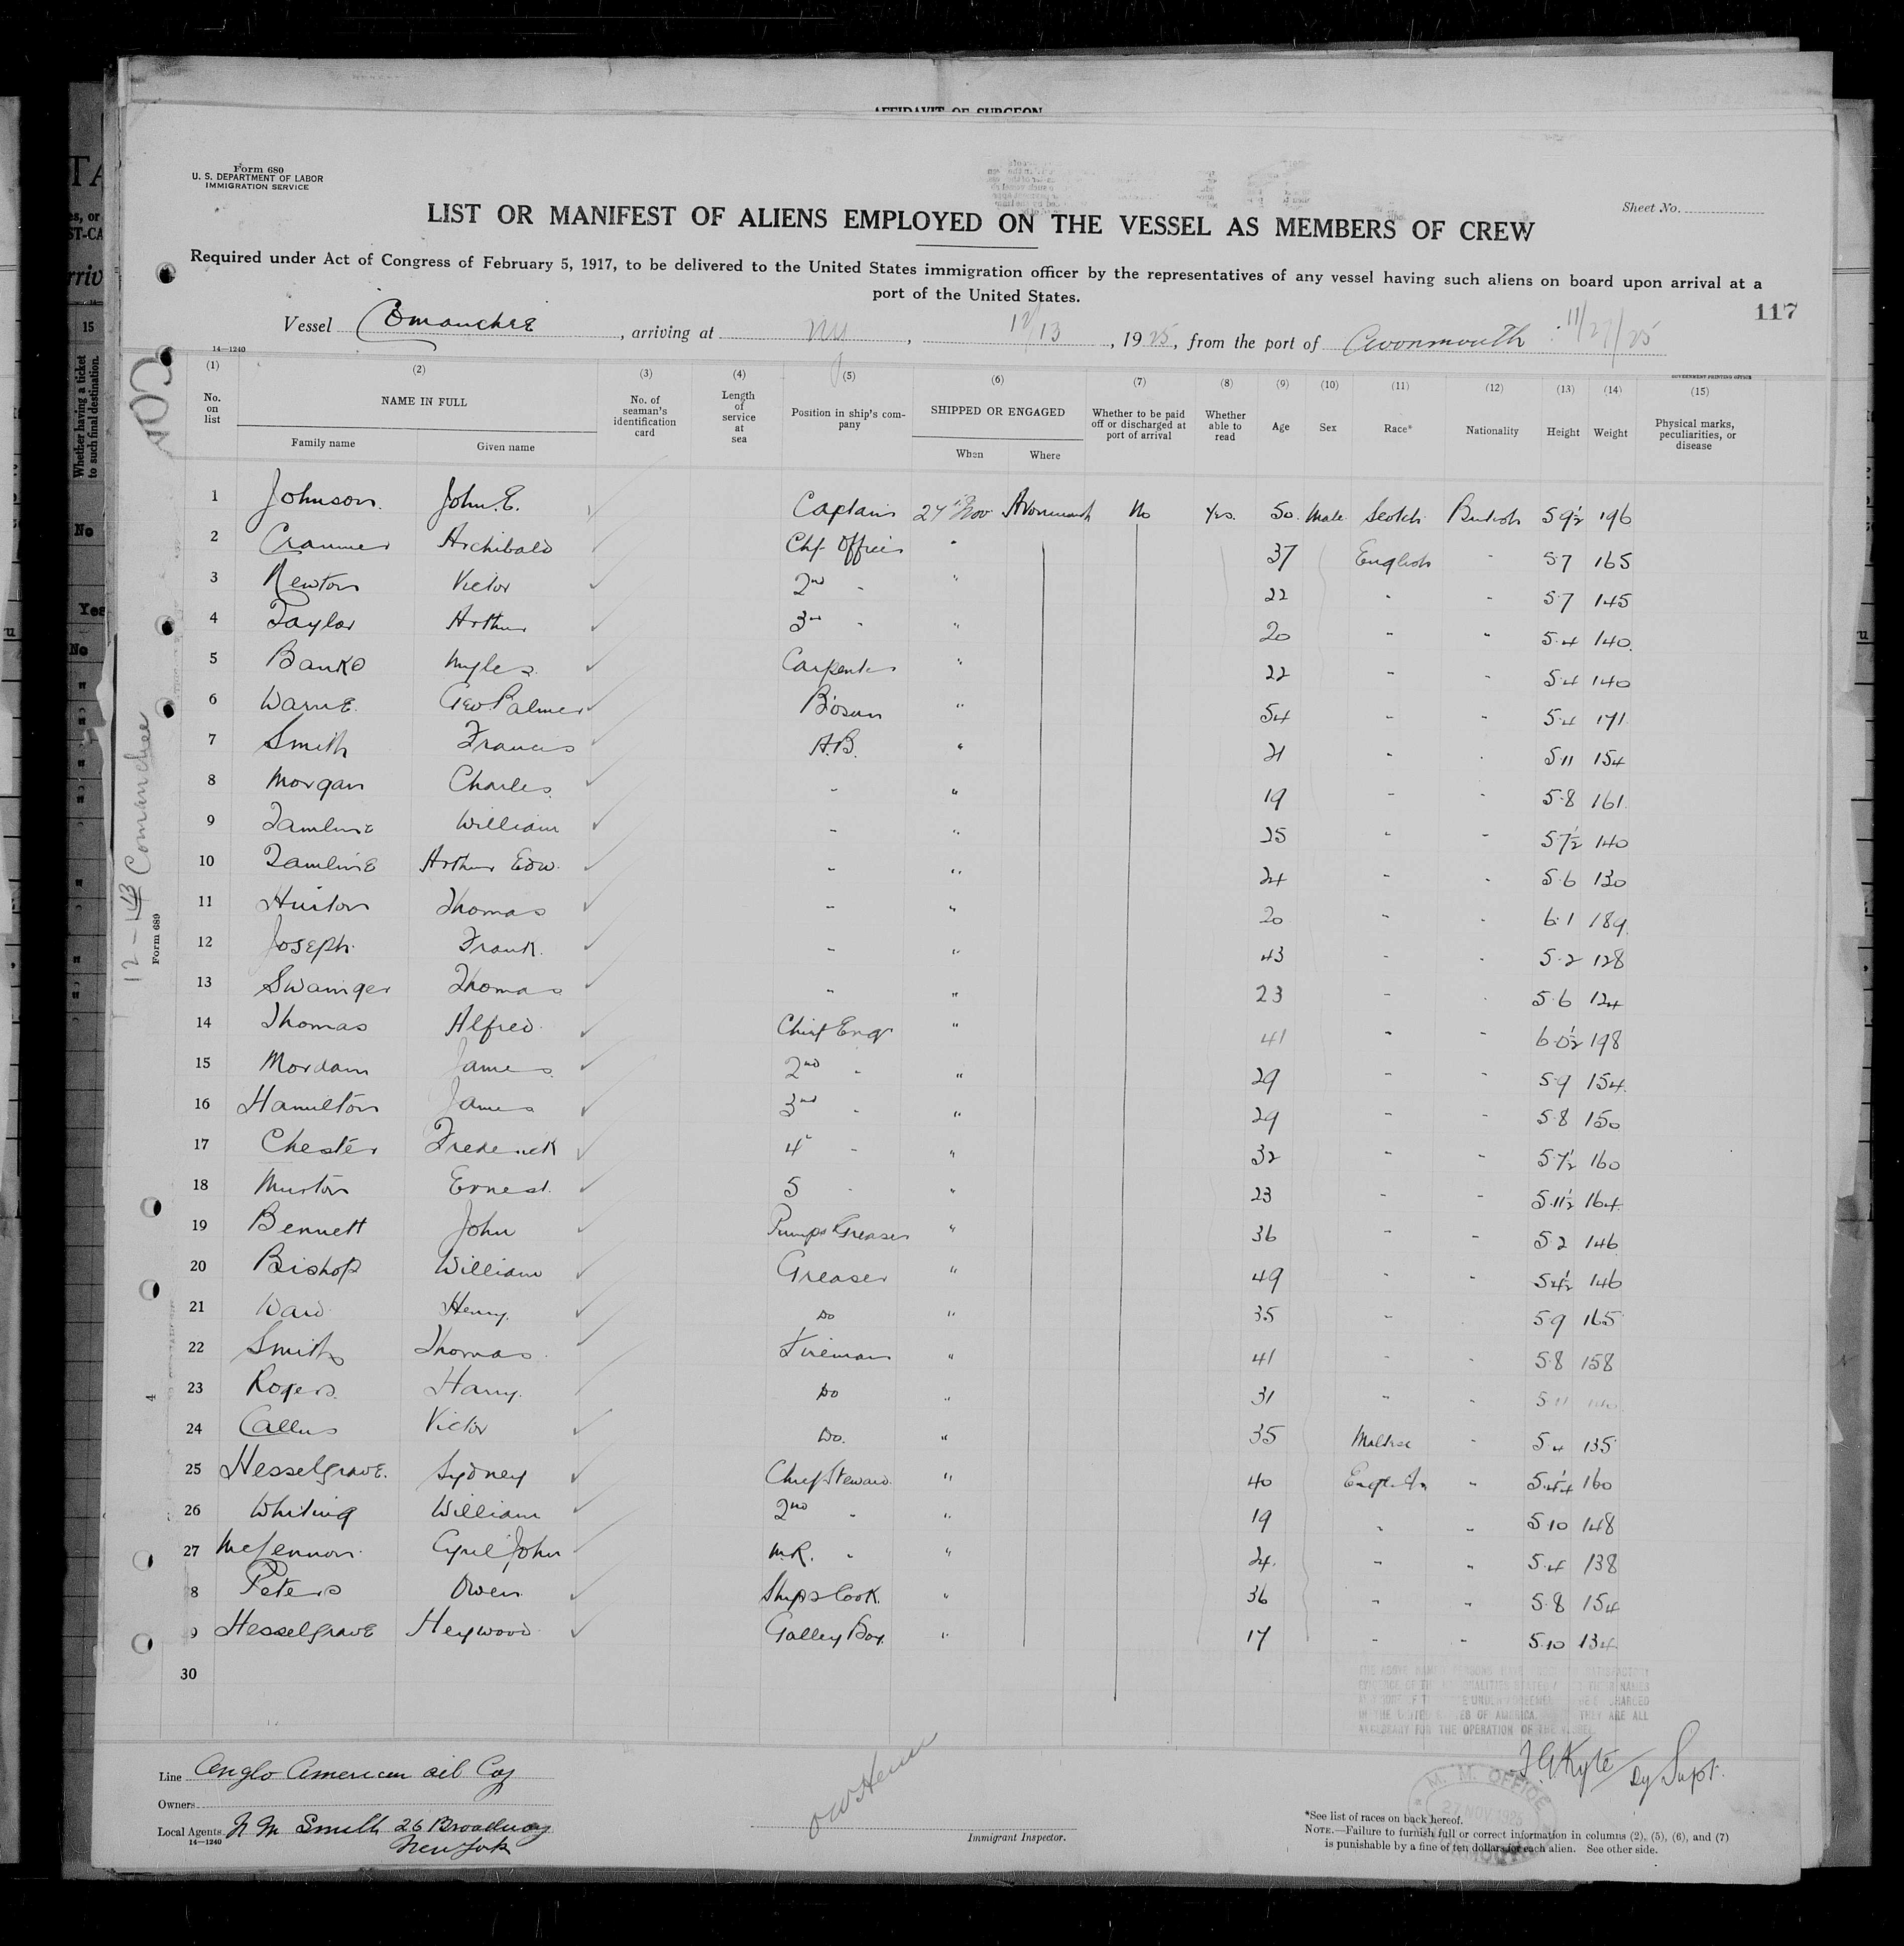 AFFIDAVIT OF SURGEON
Form 680
U. S. DEPARTMENT OF LABOR
IMMIGRATION SERVICE
Sheet No.
LIST OR MANIFEST OF ALIENS EMPLOYED ON THE VESSEL AS MEMBERS OF CREW
Required under Act of Congress of February 5, 1917, to be delivered to the United States immigration officer by the representatives of any vessel having such aliens on board upon arrival at a
port of the United States.
117
Vessel Comanchee, arriving at NY, 12/13, 1925, from the port of Avonmouth 11/27/25
14—1240
GOVERNMENT PRINTING OFFICE
(1) (2) (3) (4) (5) (6) (7) (8) (9) (10) (11) (12) (13) (14) (15)
No. on list NAME IN FULL Family name Given name No. of seaman's identification card Length of service at sea Position in ship's company SHIPPED OR ENGAGED When Where Whether to be paid off or discharged at port of arrival Whether able to read Age Sex Race* Nationality Height Weight Physical marks, peculiarities, or disease
1 Johnson John E. Captain 27 Nov Avonmouth No Yes. 50 Male Scotch British 5 9½ 196
2 Cranmer Archibald Chf Officer " 37 English " 5 7 165
3 Newton Victor 2nd " " 22 " " 5 7 145
4 Taylor Arthur 3rd " " 20 " " 5.4 140
5 Banko Myles Carpenter " 22 " " 5.4 140
6 Warne Geo. Palmer Bosun " 54 " " 5.4 171
7 Smith Francis A.B. " 21 " " 5 11 154
8 Morgan Charles " " 19 " " 5.8 161
9 Tamline William " " 25 " " 5 7½ 140
10 Tamline Arthur Edw. " " 24 " " 5.6 130
11 Huiton Thomas " " 20 " " 6.1 189
12 Joseph Frank " " 43 " " 5.2 128
13 Swainger Thomas " " 23 " " 5.6 124
14 Thomas Alfred Chief Engr " 41 " " 6 0½ 198
15 Mordain James 2nd " " 29 " " 5.9 154
16 Hamilton James 3rd " " 29 " " 5.8 150
17 Chester Frederick 4 " " 32 " " 5.7½ 160
18 Murton Ernest 5 " " 23 " " 5.11½ 164
19 Bennett John Pumps Greaser " 36 " " 5.2 146
20 Bishop William Greaser " 49 " " 5 4½ 146
21 Ward Henry. Do " 35 " 5 9 165
22 Smith Thomas Fireman " 41 " " 5.8 158
23 Rogers Harry. Do " 31 " " 5 11 140
24 Callus Victor Do. " 35 Maltese " 5 4 135
25 Hesselgrave. Sydney Chief Steward " 40 English " 5.4¼ 160
26 Whiting William 2nd " " 19 " " 5 10 148
27 McLennon Cyril John M.R. " " 24 " " 5.4 138
8 Peters Owen Ships Cook. " 36 " " 5.8 154
9 Hesselgrave Heywood Galley Boy. " 17 " " 5.10 134
30
THE ABOVE NAMED PERSONS HAVE PRODUCED SATISFACTORY
EVIDENCE OF THE NATIONALITIES STATED
IN THE UNITED STATES OF AMERICA. THEY ARE ALL
NECESSARY FOR THE OPERATION OF THE VESSEL
Line Anglo American Oil Coy
Owners
Local Agents N M Smith 26 Broadway
New York
14—1240
Immigrant Inspector.
Dy Supt.
M. M. OFFICE
27 NOV 1925
*See list of races on back hereof.
NOTE.—Failure to furnish full or correct information in columns (2), (5), (6), and (7)
is punishable by a fine of ten dollars for each alien. See other side.
12-13 Comanchee
Form 680
4
15
Whether having a ticket
to such final destination.
No
Yes
No